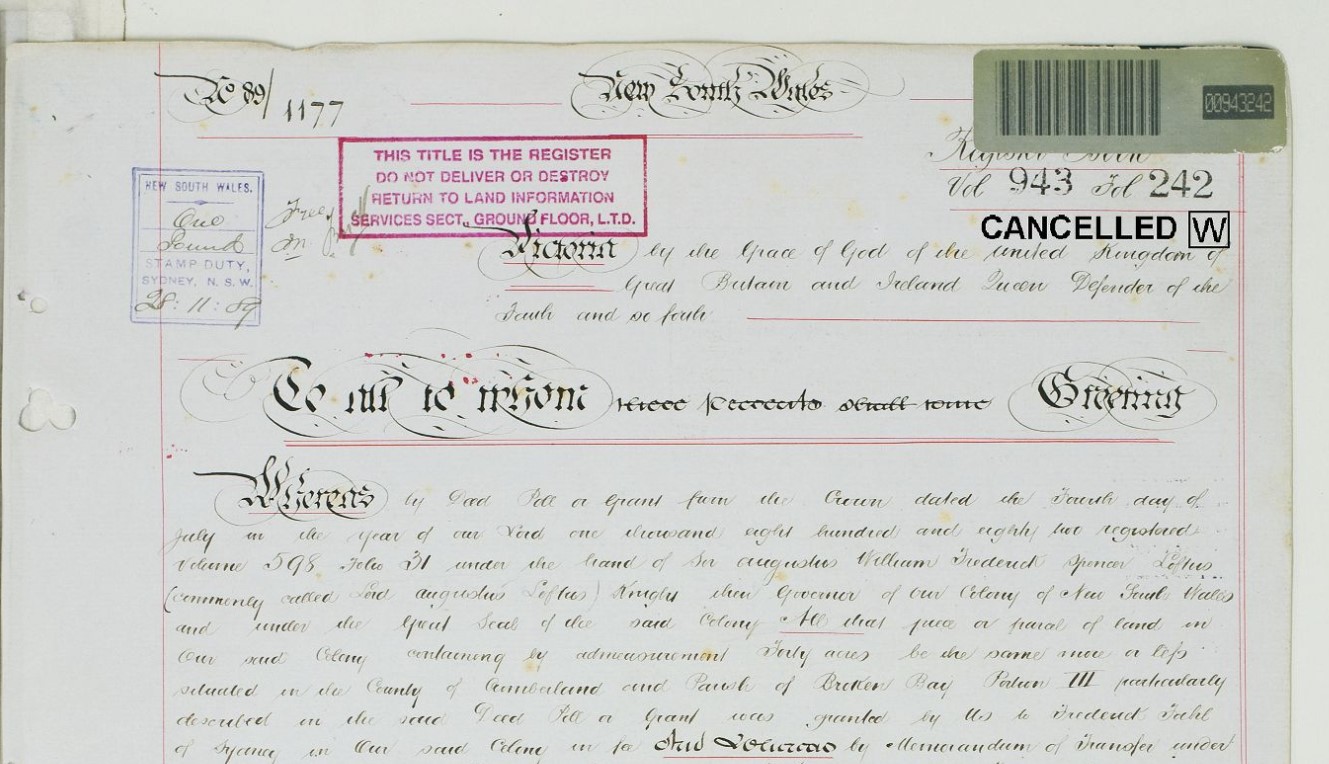 No 89/1177
New South Wales
00943242
Register Book
Vol 943 Fol 242
CANCELLED W
THIS TITLE IS THE REGISTER
DO NOT DELIVER OR DESTROY
RETURN TO LAND INFORMATION
SERVICES SECT., GROUND FLOOR, L.T.D.
NEW SOUTH WALES.
One
Pound
STAMP DUTY,
SYDNEY, N. S. W.
28: 11: 89
Victoria by the Grace of God of the United Kingdom of
Great Britain and Ireland Queen Defender of the
Faith and so forth
To all to whom these Presents shall come Greeting
Whereas by Deed Poll or Grant from the Crown dated the Fourth day of
July in the year of our Lord one thousand eight hundred and eighty two registered
Volume 598 Folio 31 under the hand of Sir Augustus William Frederick Spencer Loftus
(commonly called Lord Augustus Loftus) Knight then Governor of our Colony of New South Wales
and under the Great Seal of the said Colony All that piece or parcel of land in
Our said Colony containing by admeasurement Forty acres be the same more or less
situated in the County of Cumberland and Parish of Broken Bay Portion III particularly
described in the said Deed Poll or Grant was granted by Us to Frederick
of Sydney in Our said Colony in fee And Whereas by Memorandum of Transfer under